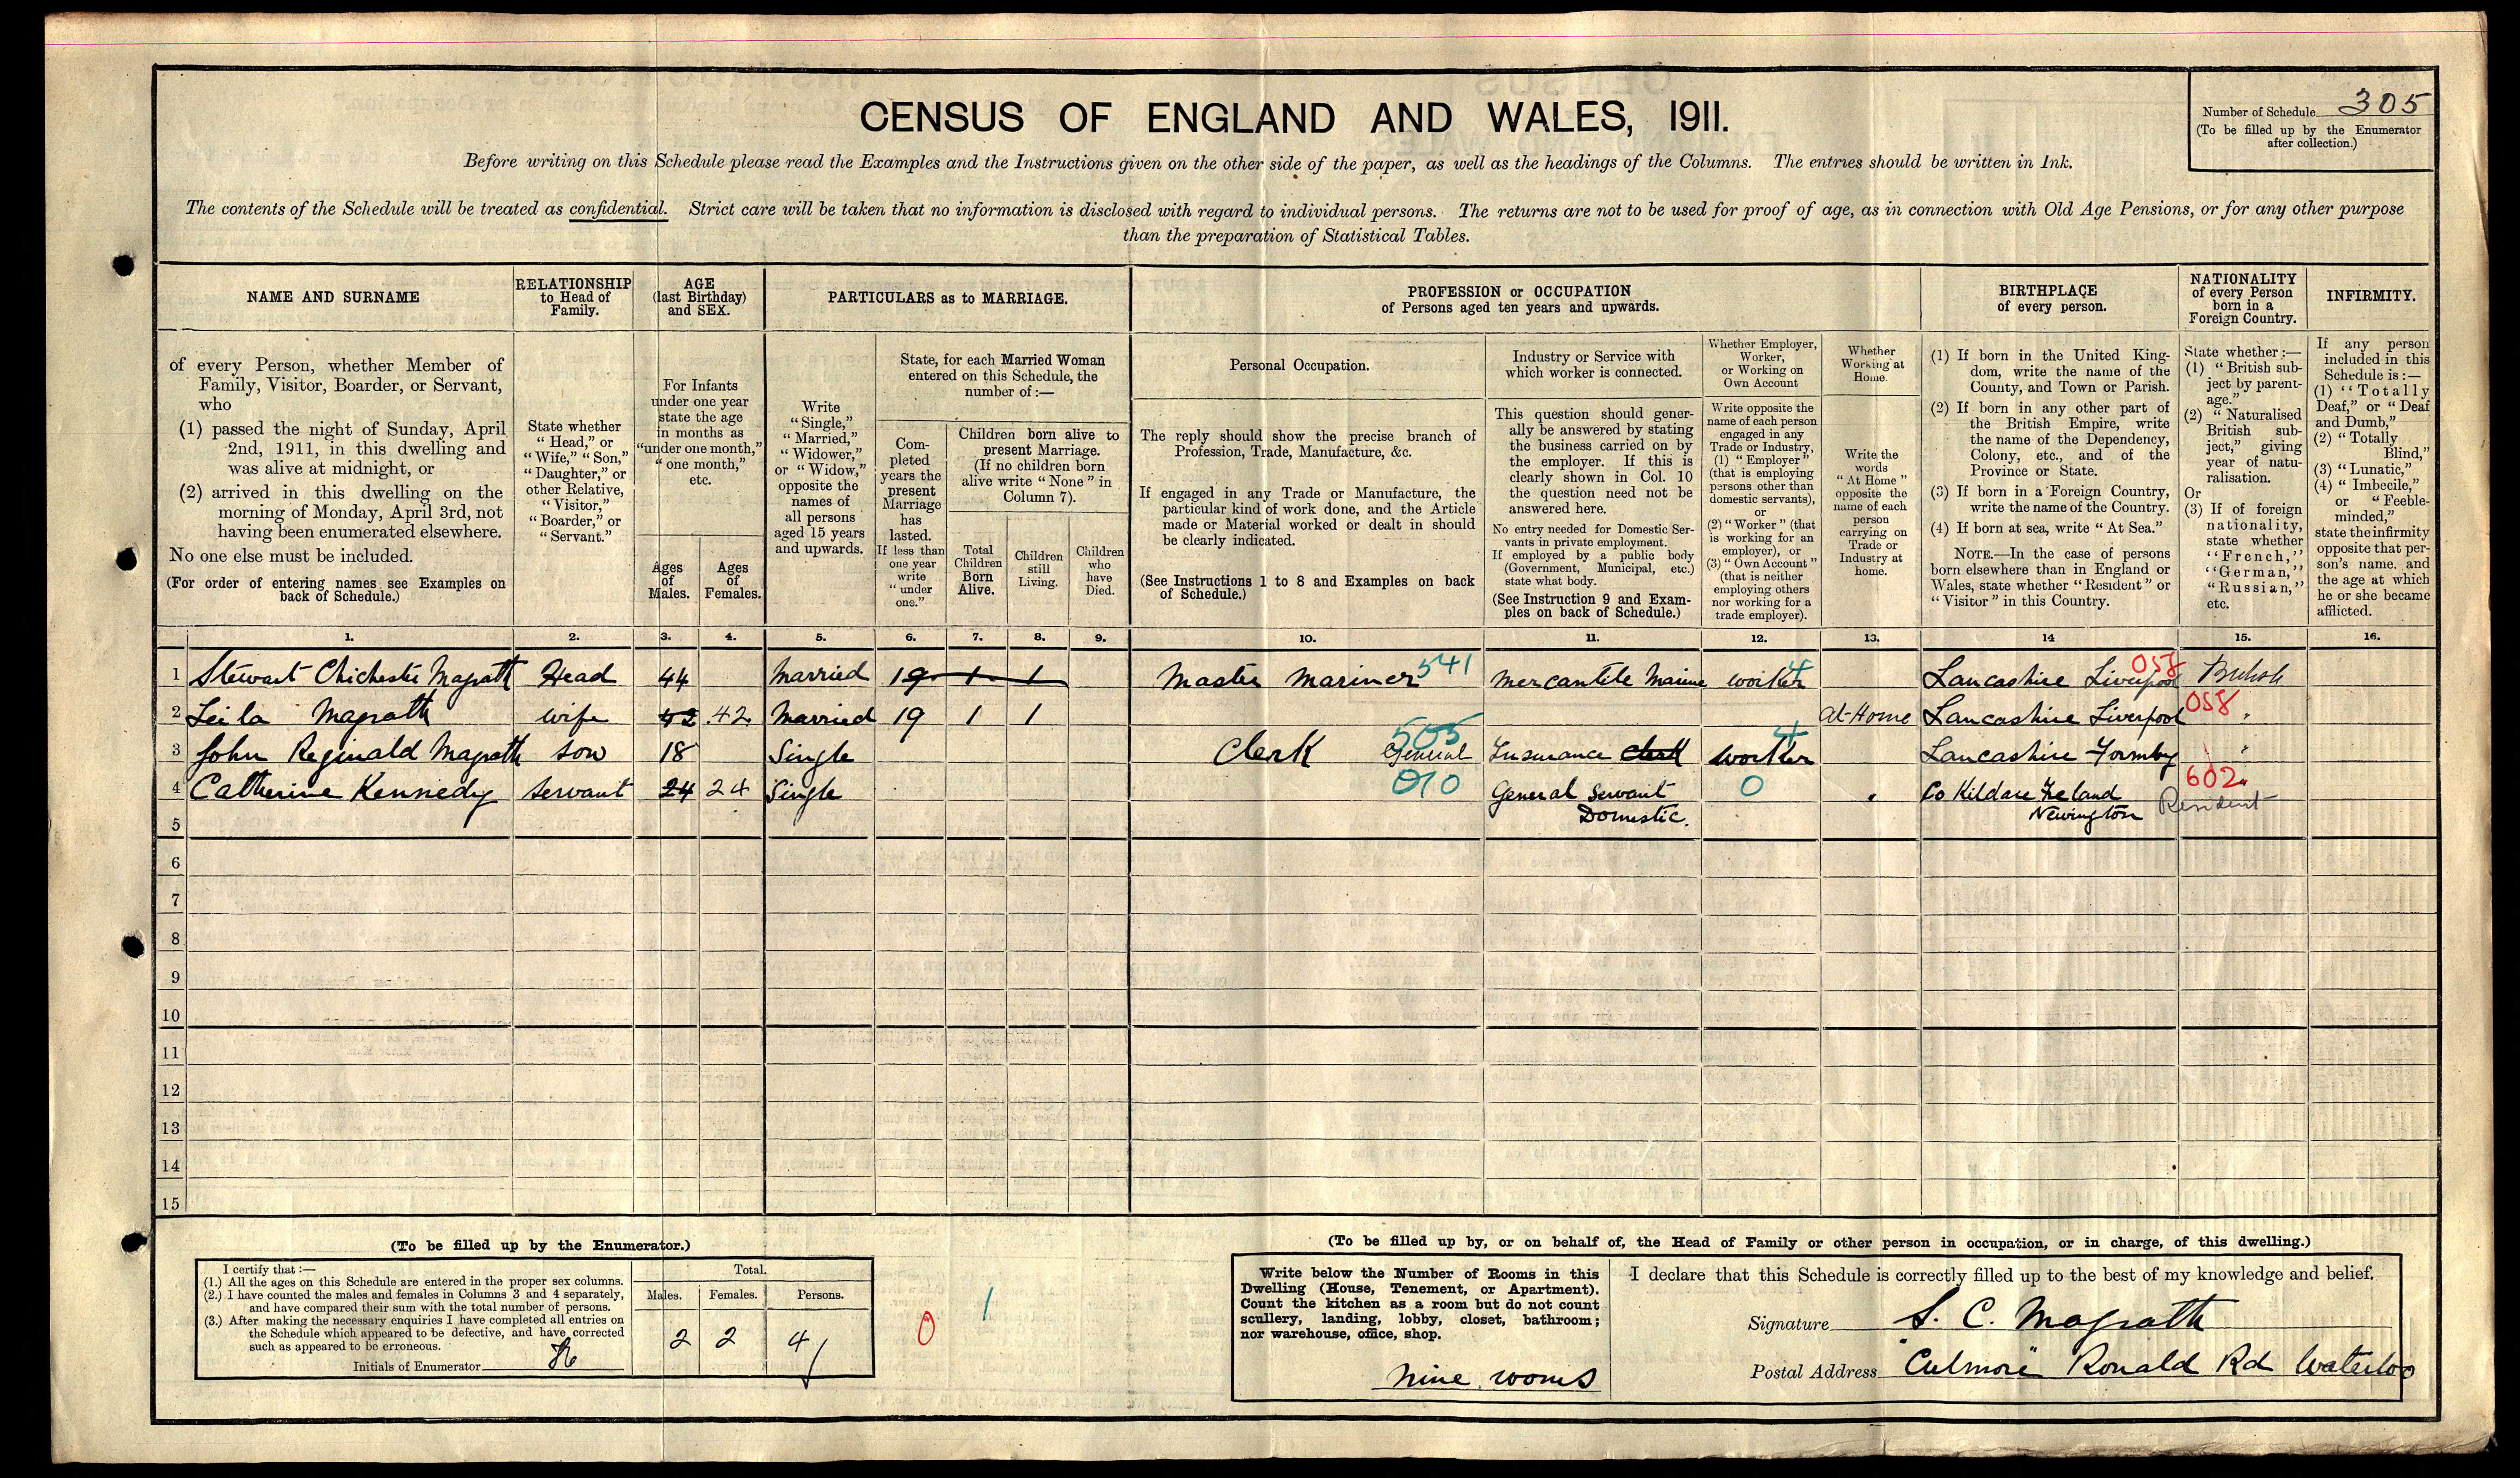 CENSUS OF ENGLAND AND WALES, 1911.
Number of Schedule 305
(To be filled up by the Enumerator
after collection.)
Before writing on this Schedule please read the Examples and the Instructions given on the other side of the paper, as well as the headings of the Columns. The entries should be written in Ink.
The contents of the Schedule will be treated as confidential. Strict care will be taken that no information is disclosed with regard to individual persons. The returns are not to be used for proof of age, as in connection with Old Age Pensions, or for any other purpose
than the preparation of Statistical Tables.
NAME AND SURNAME
of every Person, whether Member of
Family, Visitor, Boarder, or Servant,
who
(1) passed the night of Sunday, April
2nd, 1911, in this dwelling and
was alive at midnight, or
(2) arrived in this dwelling on the
morning of Monday, April 3rd, not
having been enumerated elsewhere.
No one else must be included.
(For order of entering names see Examples on
back of Schedule.)
RELATIONSHIP
to Head of
Family.
State whether
"Head," or
"Wife," "Son,"
"Daughter," or
other Relative,
"Visitor,"
"Boarder," or
"Servant."
AGE
(last Birthday)
and SEX.
For Infants
under one year
state the age
in months as
"under one month,"
"one month,"
etc.
Ages
of
Males.
Ages
of
Females.
PARTICULARS as to MARRIAGE.
Write
"Single,"
"Married,"
"Widower,"
or "Widow,"
opposite the
names of
all persons
aged 15 years
and upwards.
State, for each Married Woman
entered on this Schedule, the
number of :—
Com-
pleted
years the
present
Marriage
has
lasted.
If less than
one year
write
"under
one."
Children born alive to
present Marriage.
(If no children born
alive write "None" in
Column 7).
Total
Children
Born
Alive.
Children
still
Living.
Children
who
have
Died.
PROFESSION or OCCUPATION
of Persons aged ten years and upwards.
Personal Occupation.
The reply should show the precise branch of
Profession, Trade, Manufacture, &c.
If engaged in any Trade or Manufacture, the
particular kind of work done, and the Article
made or Material worked or dealt in should
be clearly indicated.
(See Instructions 1 to 8 and Examples on back
of Schedule.)
Industry or Service with
which worker is connected.
This question should gener-
ally be answered by stating
the business carried on by
the employer. If this is
clearly shown in Col. 10
the question need not be
answered here.
No entry needed for Domestic Ser-
vants in private employment.
If employed by a public body
(Government, Municipal, etc.)
state what body.
(See Instruction 9 and Exam-
ples on back of Schedule.)
Whether Employer,
Worker,
or Working on
Own Account
Write opposite the
name of each person
engaged in any
Trade or Industry,
(1) "Employer"
(that is employing
persons other than
domestic servants),
or
(2) "Worker" (that
is working for an
employer), or
(3) "Own Account"
(that is neither
employing others
nor working for a
trade employer).
Whether
Working at
Home.
Write the
words
"At Home"
opposite the
name of each
person
carrying on
Trade or
Industry at
home.
BIRTHPLACE
of every person.
(1) If born in the United King-
dom, write the name of the
County, and Town or Parish.
(2) If born in any other part of
the British Empire, write
the name of the Dependency,
Colony, etc., and of the
Province or State.
(3) If born in a Foreign Country,
write the name of the Country.
(4) If born at sea, write "At Sea."
NOTE.—In the case of persons
born elsewhere than in England or
Wales, state whether "Resident" or
"Visitor" in this Country.
NATIONALITY
of every Person
born in a
Foreign Country.
State whether :—
(1) "British sub-
ject by parent-
age."
(2) "Naturalised
British sub-
ject," giving
year of natu-
ralisation.
Or
(3) If of foreign
nationality,
state whether
"French,"
"German,"
"Russian,"
etc.
INFIRMITY.
If any person
included in this
Schedule is :—
(1) "Totally
Deaf," or "Deaf
and Dumb,"
(2) "Totally
Blind,"
(3) "Lunatic,"
(4) "Imbecile,"
or "Feeble-
minded,"
state the infirmity
opposite that per-
son's name, and
the age at which
he or she became
afflicted.
1. 2. 3. 4. 5. 6. 7. 8. 9. 10. 11. 12. 13. 14 15. 16.
1 Stewart Chichester Magrath Head 44 Married 19 1 1 Master Mariner 541 Mercantile Marine worker 4 Lancashire Liverpool 058 British
2 Leila Magrath wife 42 42 Married 19 1 1 At Home Lancashire Liverpool 058 "
3 John Reginald Magrath son 18 Single Clerk General 505 Insurance clerk worker 4 Lancashire Formby "
4 Catherine Kennedy servant 24 24 Single 010 General Servant 0 Co Kildare Ireland 602
5 Domestic. Newington Resident
6
7
8
9
10
11
12
13
14
15
(To be filled up by the Enumerator.)
I certify that :—
(1.) All the ages on this Schedule are entered in the proper sex columns.
(2.) I have counted the males and females in Columns 3 and 4 separately,
and have compared their sum with the total number of persons.
(3.) After making the necessary enquiries I have completed all entries on
the Schedule which appeared to be defective, and have corrected
such as appeared to be erroneous.
Initials of Enumerator
Total.
Males. Females. Persons.
2 2 4
0 1
(To be filled up by, or on behalf of, the Head of Family or other person in occupation, or in charge, of this dwelling.)
Write below the Number of Rooms in this
Dwelling (House, Tenement, or Apartment).
Count the kitchen as a room but do not count
scullery, landing, lobby, closet, bathroom;
nor warehouse, office, shop.
nine rooms
I declare that this Schedule is correctly filled up to the best of my knowledge and belief.
Signature S. C. Magrath
Postal Address "Culmore" Ronald Rd Waterloo